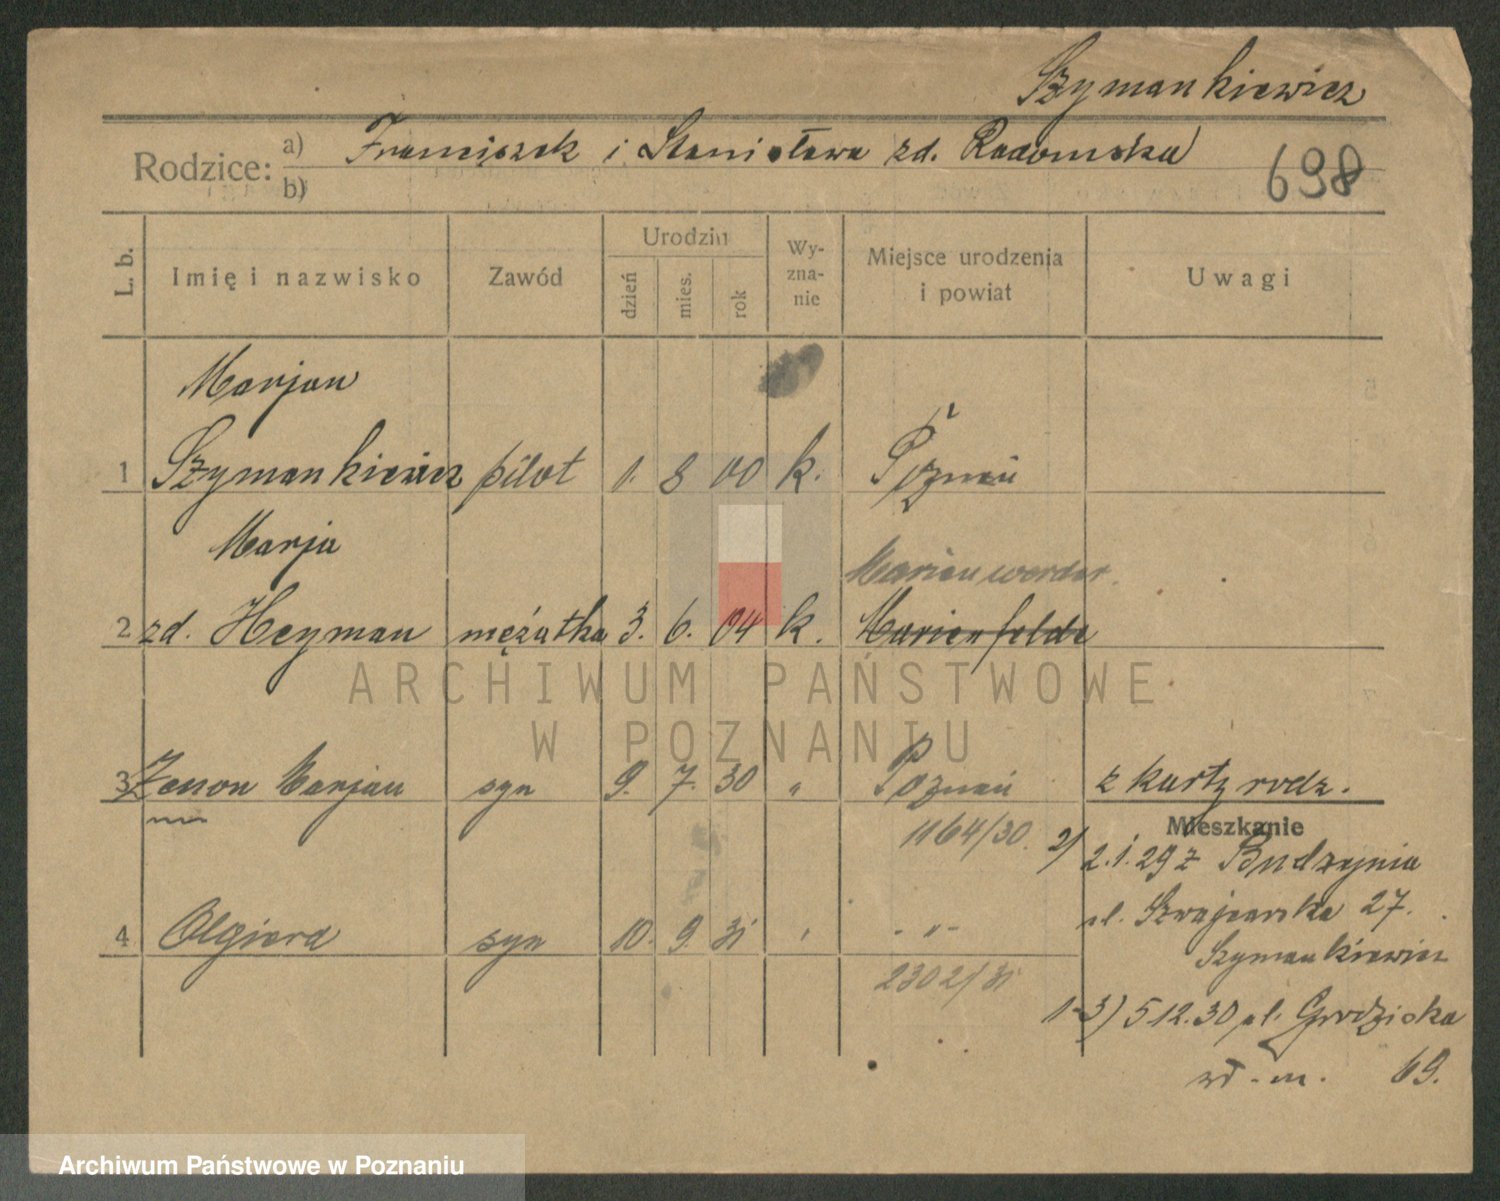 Szymankiewicz
Rodzice: a) Franciszek i Stanisława zd. Radomska
b)
698
L. b.
Imię i nazwisko
Zawód
Urodziu
dzień
mies.
rok
Wy-
zna-
nie
Miejsce urodzenia
i powiat
Uwagi
Marjan
1 Szymankiewicz pilot 1. 8 00 k. Poznań
Marja
Marienwerder.
2 zd. Heyman mężatka 3. 6. 04 k. Marienfelde
3 Zenon Marjan syn 9. 7. 30 " Poznań z karty rodz.
1164/30.
Mieszkanie
2) 2.1.29 z Budzynia
ul. Szwajcarska 27.
4 Olgierd syn 10. 9. 31 - " -
Szymankiewicz
2302/31
1-3) 5 12.30 ul. Grodziska
wł. m. 69.
ARCHIWUM PAŃSTWOWE
W POZNANIU
Archiwum Państwowe w Poznaniu